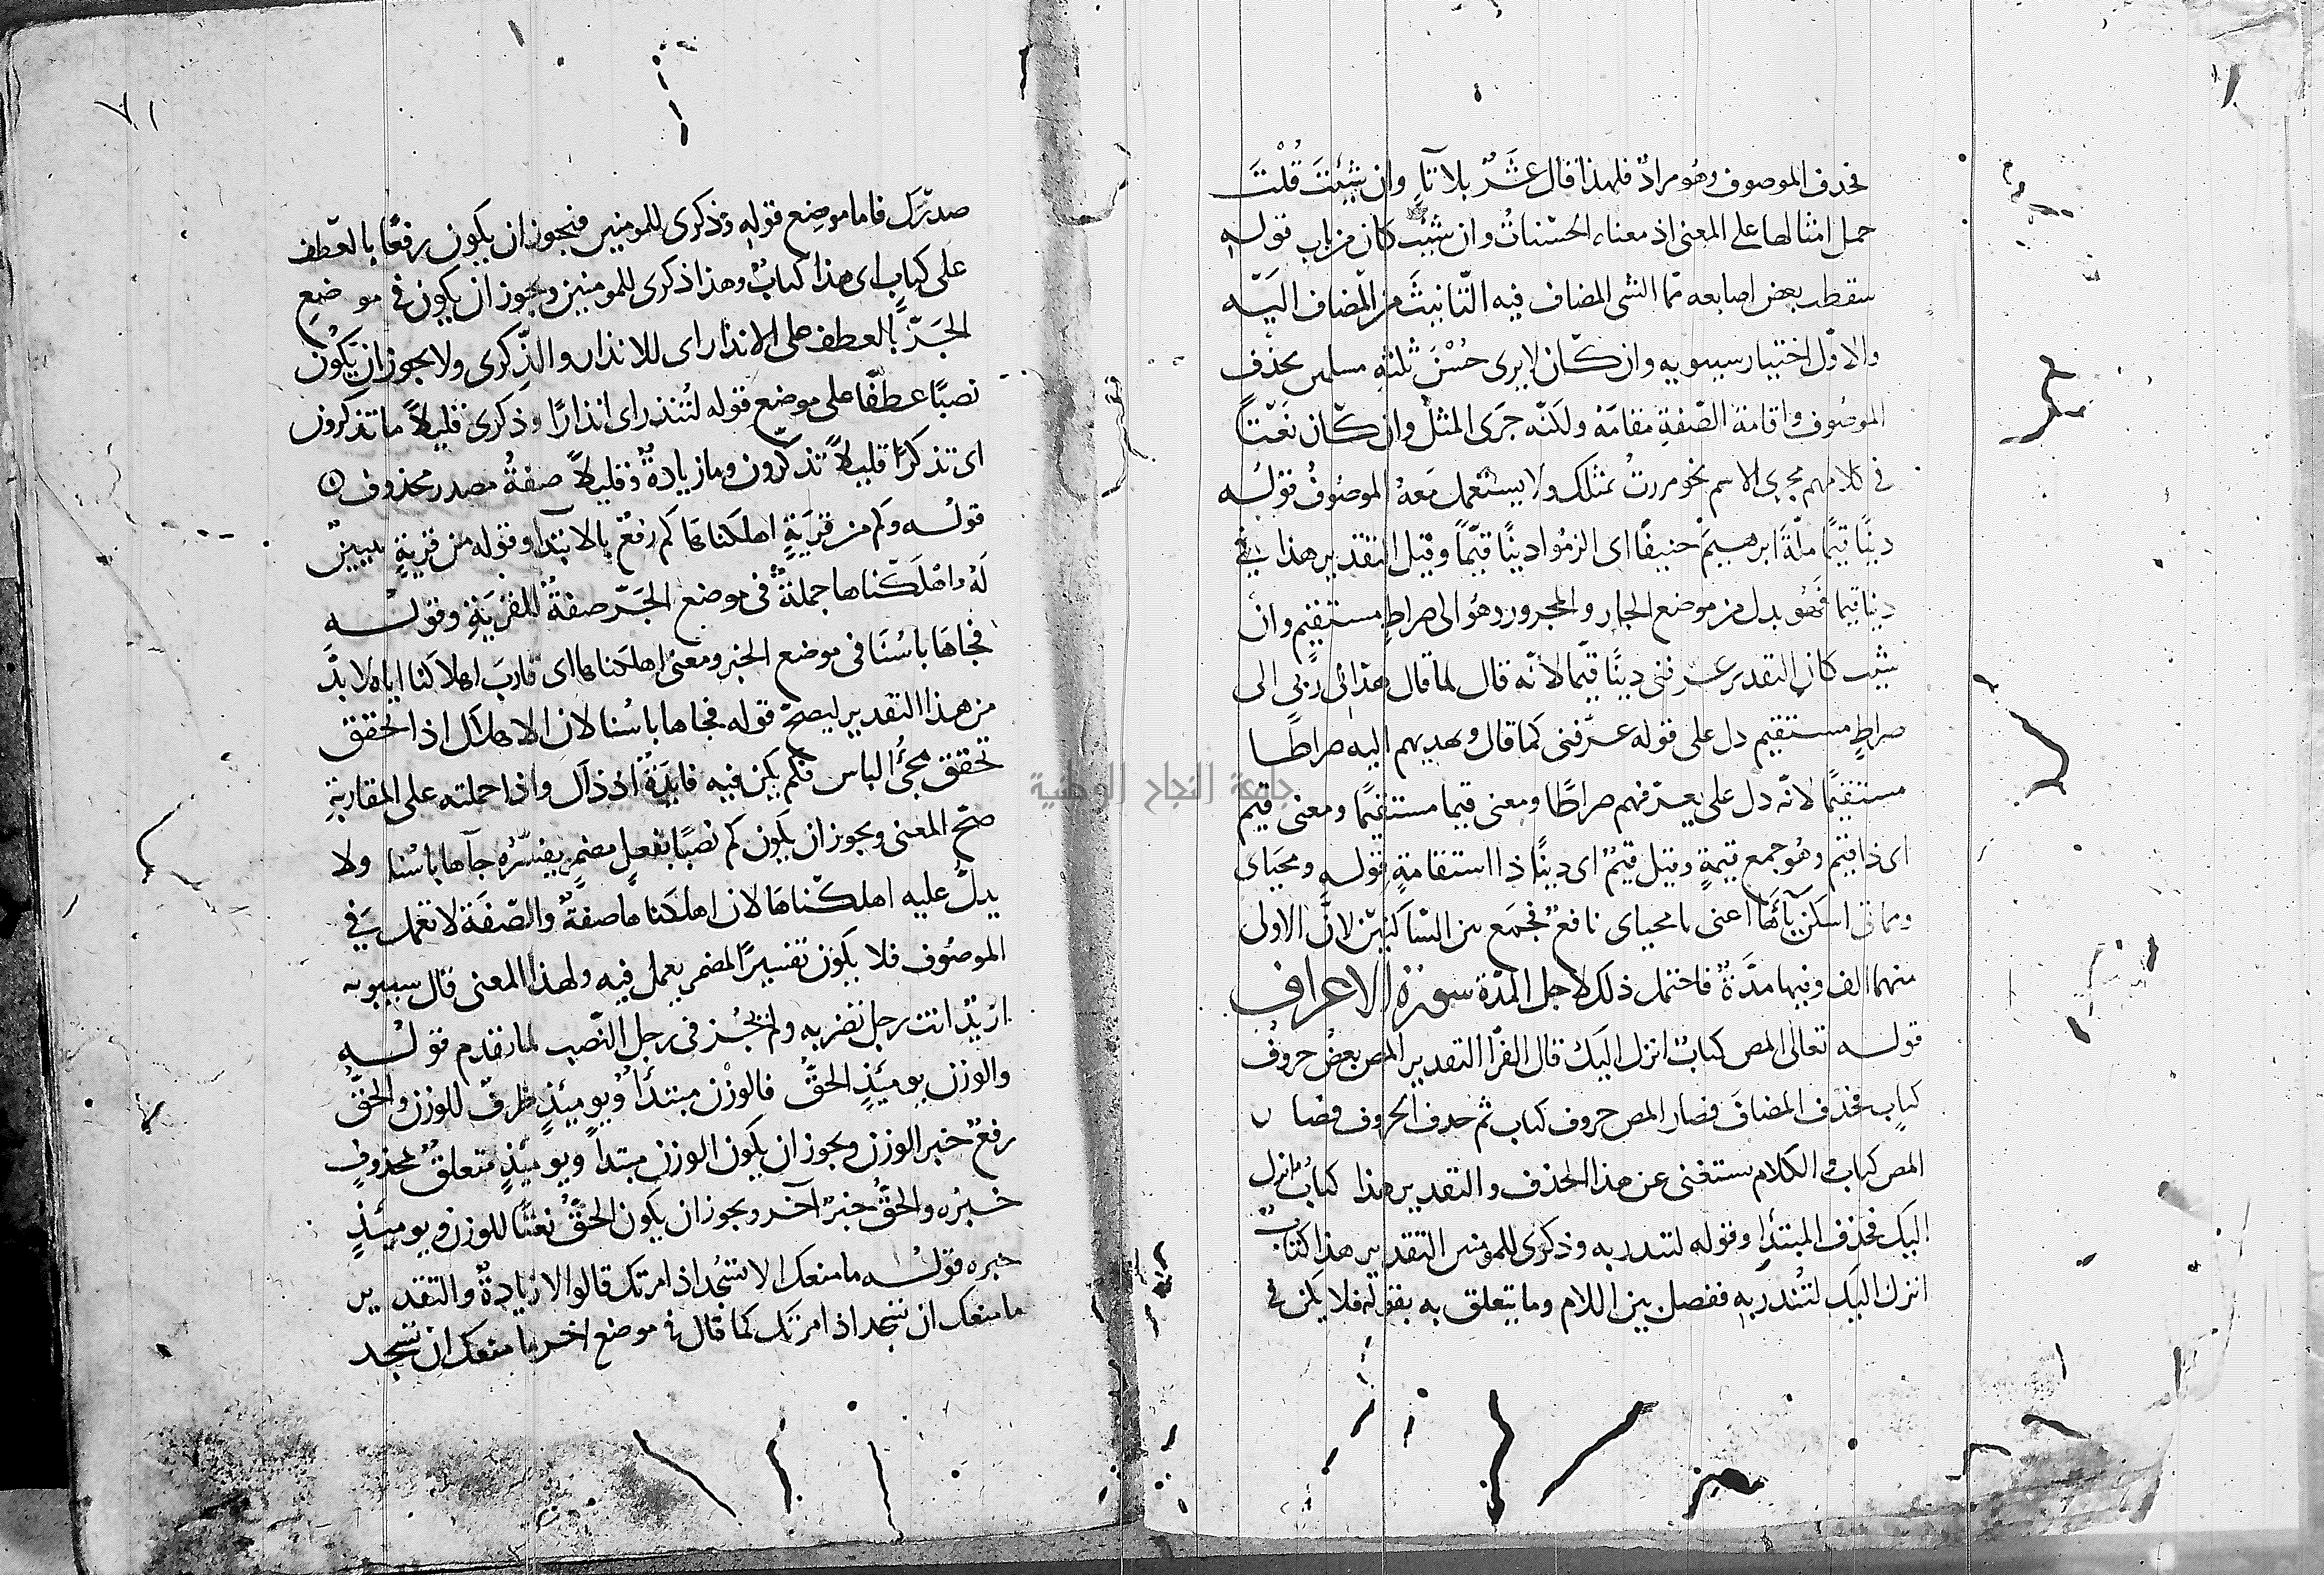 فحذف الموصوف وهو مراد فلهذا قال عَشْرُ بلا تاءٍ وان شِئْتَ قُلْتَ
حمل امثالها على المعنى اذ معناه الحسناتُ وان شيت كان من باب قوله
سقطت بعض اصابعه مما اكتسى المضاف فيه التانيثَ من المضاف اليه
والاوّل اختيار سيبويه وان كان لا يرى حُسْنَ ثلثة مسلمين بحذف
الموصوف واقامة الصّفة مقامَهُ ولكنّه جَرَى المثلُ وان كان نَعْتًا
في كلامهم مجرى الاسم نحو مررتُ بمثلك ولا يستعمل مَعَهُ الموصُوفُ قوله
دينًا قيمًا ملّةَ ابرهيم حنيفًا اى الزموا دينًا قيّمًا وقيل التقدير هذا في
دينا قيما فهُو بدل من موضع الجار والمجرور وهُو الى صراطٍ مستقيم وان
شيت كان التقدير عرفنى دينًا قيّما لانّه قال لما قال هدانى ربى الى
صراطٍ مستقيم دل على قوله عَرَّفنى كما قال ويهديهم اليه صراطًا
مستقيمًا لانّه دل على يعرّفهم صراطًا ومعنى قيما مستقيمًا ومعنى قيم
اى ذا قيَم وهُو جمع قيمةٍ وقيل قيمٌ اى دينًا ذا استقامةٍ قوله ومحياى
ومماتى اسكن ياءَها اعنى يا محياى نافعٌ فجمَع بين السّاكنين لانّ الاولى
منهما الف وفيها مدّةٌ فاحتمل ذلك لاجل المدّة سورة الاعراف
قوله تعالى المص كتابٌ انزل اليك قال الفرّا التقدير المص بعضُ حروف
كتابٍ فحذف المضافَ فصار المص حروف كتاب ثم حذف الحروف فصار
المص كتاب والكلام مستغنى عن هذا الحذف والتقدير هذا كتابٌ انزل
اليك فحذف المبتدا وقوله لتنذر به وذكرى للمومنين التقدير هذا كتابٌ
انزل اليك لتُنذر به ففصل بين اللام وما يتعلق به بقوله فلا يكن في
٧١
صدرك فاما موضِع قوله وذكرى للمومنين فيجوز ان يكون رفعًا بالعطف
على كتابٍ اى هذا كتابٌ وهذا ذكرى للمومنين ويجوز ان يكون في موضع
الجَرّ بالعطف على الانذار اى للانذار والذِّكرى ولا يجوز ان يكون
نصبًا عطفًا على موضع قوله لتُنذر اى انذارًا وذكرى قليلاً ما تذكرون
اى تذكرًا قليلاً تذكّرون وما زيادةٌ وقليلاً صفةُ مصدر محذوف
قوله وكم من قريَةٍ اهلكناها كَم رفعٌ بالابتدآ وقوله من قريةٍ تبيينٌ
لَهُ واهْلَكْناها جملةٌ في موضع الجَرّ صفةٌ للقَرْيَةِ وقوله
فجاها باسُنَا في موضع الخبر ومعنى اهلكناها اى قاربَ اهلاكنا اياها لا بدَّ
من هذا التقدير ليصحّ قوله فجاها باسُنا لان الاهلاك اذا تحقق
تحقق مجئُ الباس فلم يكن فيه فايدَةٌ اذ ذاك واذا حملته على المقاربةِ
صحّ المعنى ويجوز ان يكون كم نصبًا بفعلٍ مضمرٍ يفسّرُه جآها باسُنا ولا
يدلّ عليه اهلكناهَا لان اهلكناها صفةٌ والصّفَة لا تعمل في
الموصُوف فلا يكون تفسيرًا لمضمر يعمل فيه ولهذا المعنى قال سيبويه
ازيْدٌ انت رجل تضربه ولم يجُز فى رجل النّصب لما تقدم قوله
والوزن يوميذٍ الحقُّ فالوزْن مبتدأٌ ويوميئذٍ ظرفٌ للوزن والحقُّ
رفعٌ خبر الوزن ويجوز ان يكون الوزن مبتدأً ويوميئذٍ متعلقٌ بمحذوفٍ
خبرُه والحقُّ خبرٌ آخر ويجوز ان يكون الحقُّ نعتًا للوزن ويوميئذٍ
خبره قوله ما منعك الا تسْجُد اذ امرتك قالوا لا زيادةٌ والتقدير
ما منعك ان تسجد اذ امرتك كما قال في موضع اخر ما منعك ان تسجد
جامعة النجاح الوطنية